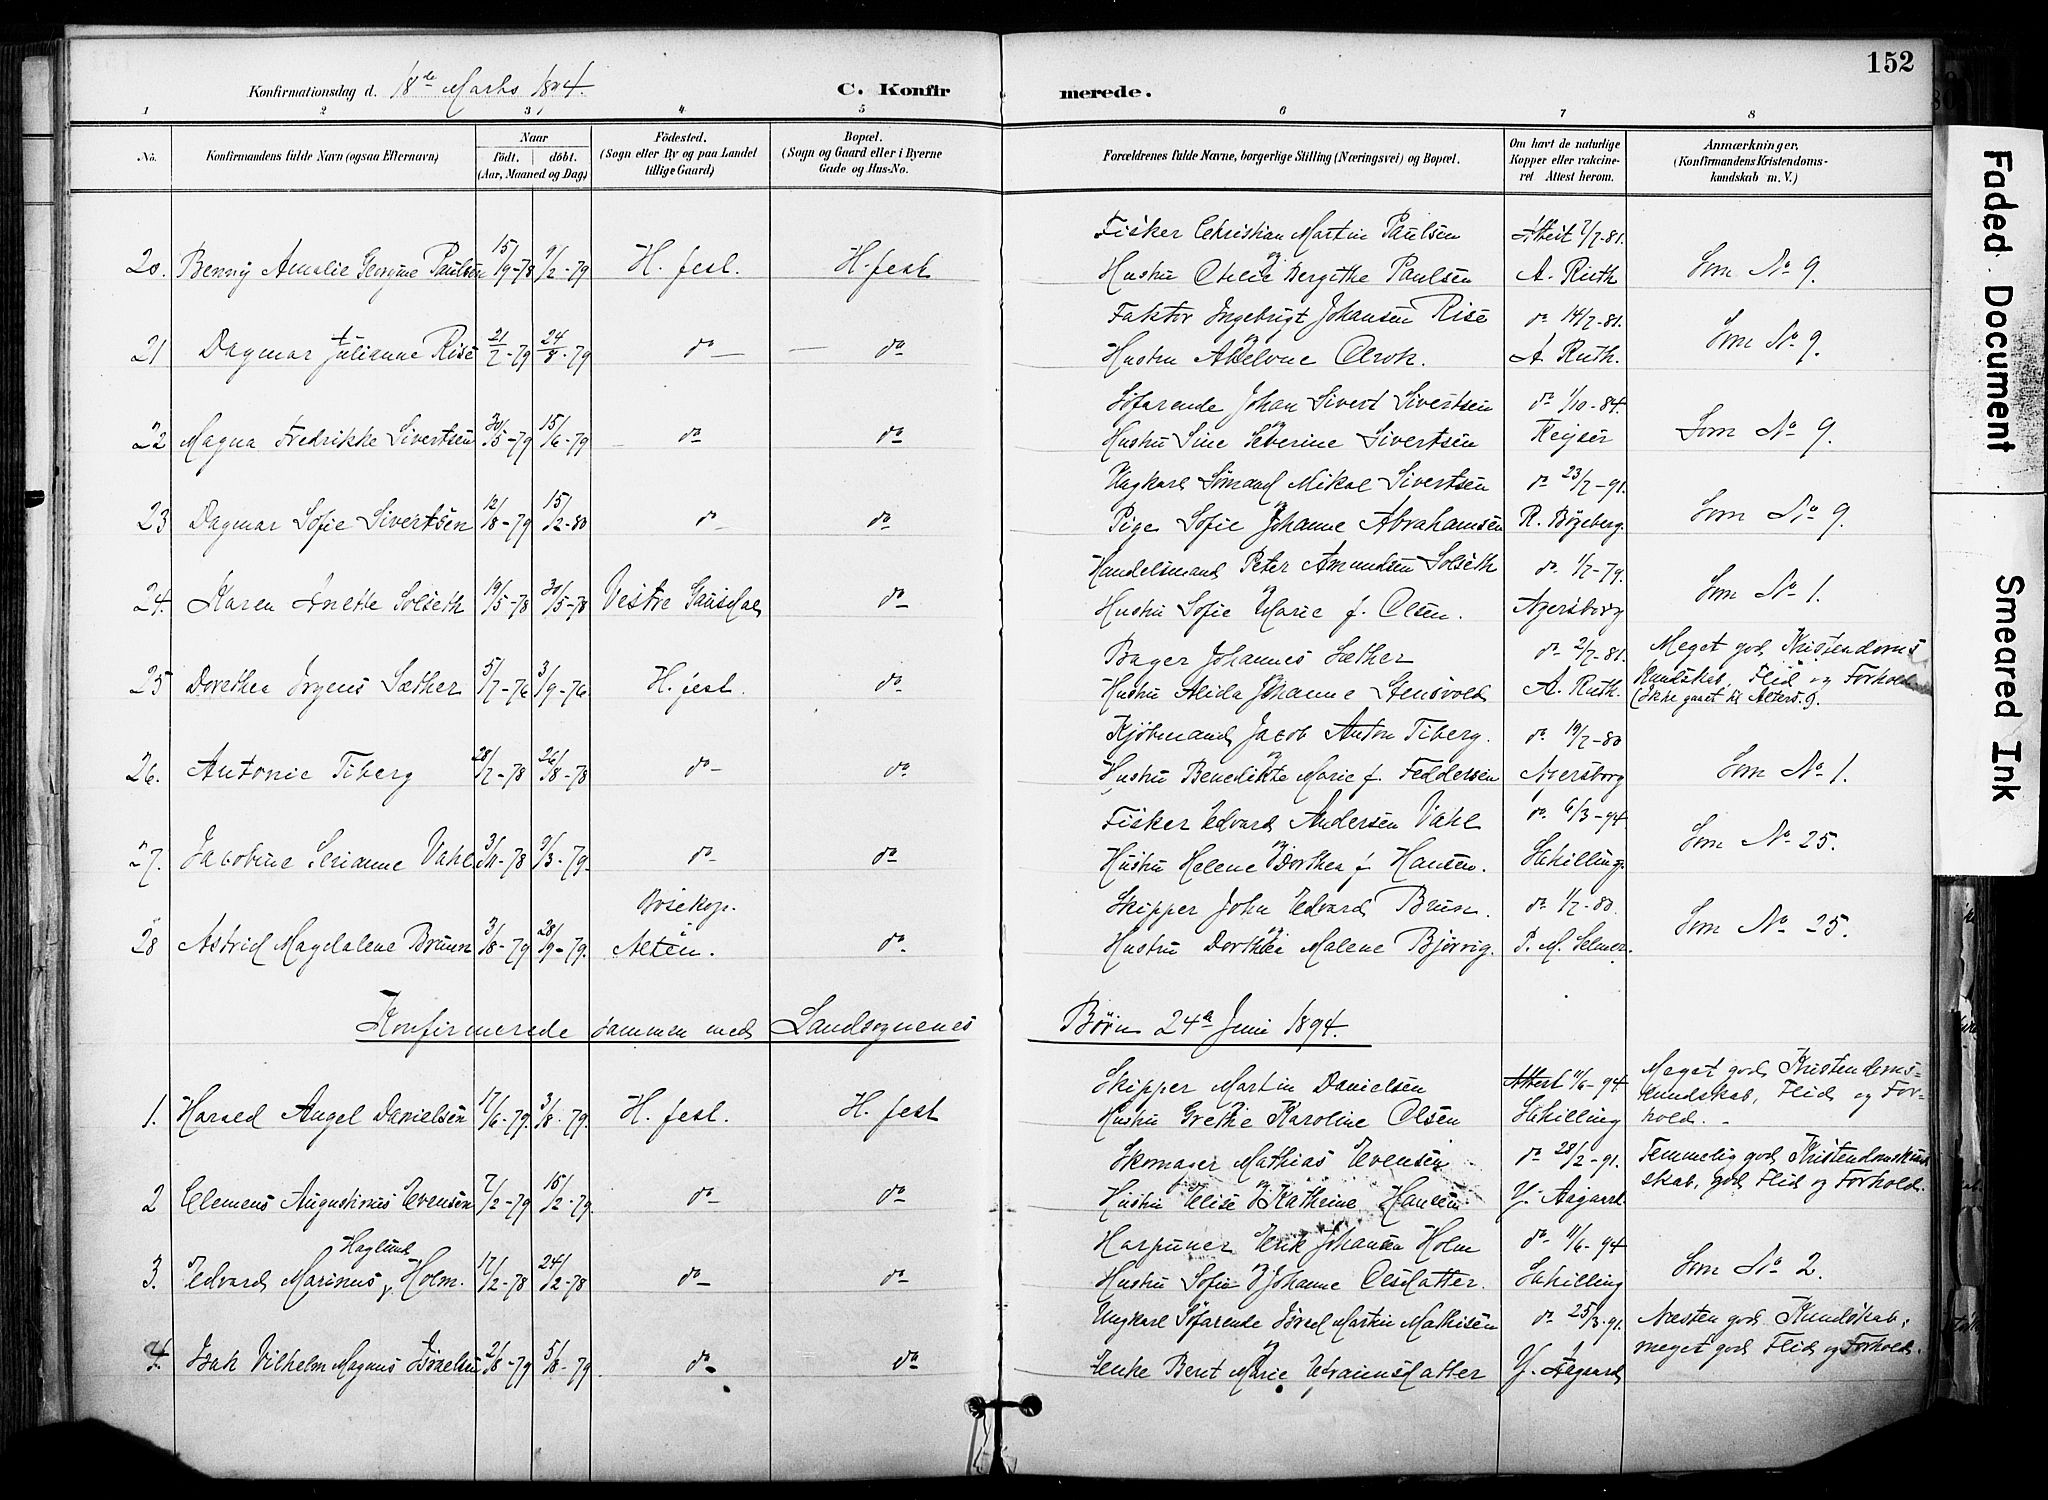 152
Konfirmationsdag d. 18de Marts 1894.
C. Konfirmerede.
1 2 3 4 5 6 7 8
No.
Konfirmandens fulde Navn (ogsaa Efternavn)
Naar
født. døbt.
(Aar, Maaned og Dag)
Fødested.
(Sogn eller By og paa Landet
tillige Gaard)
Bopæl.
(Sogn og Gaard eller i Byerne
Gade og Hus-No.
Forældrenes fulde Navne, borgerlige Stilling (Næringsvei) og Bopæl.
Om havt de naturlige
Kopper eller vakcine-
ret Attest herom.
Anmærkninger.
(Konfirmandens Kristendoms-
kundskab m. V.)
Fisker Christian Martin Paulsen Attest 7/7-81.
20. Benny Amalie Georgine Paulsen 15/9-78 9/2-79 H.fest. H.fest Hustru Otilie Bergithe Paulsen A. Ruth Som No 9.
Faktor Ingebrigt Johansen Rise do 14/7-81.
21 Dagmar Julianne Rise 21/7-79 24/8-79 do do Hustru Olrok. A. Ruth. Som No 9.
Søfarende Johan Sivert Sivertsen do 1/10-84.
22 Magna Fredrikke Sivertsen 30/5-79 15/6-79 do do Hustru Sine Severine Sivertsen Keyser Som No 9.
Ungkarl Sømand Mikal Sivertsen do 23/7-91.
23 Dagmar Sofie Sivertsen 12/8-79 15/2-80 do do Pige Sofie Johanne Abrahamsen R. Bøgeberg. Som No 9.
Handelsmand Peter Amundsen Solseth do 1/7-79.
24. Karen Anette Solseth 19/5-78 30/5-78 Vestre Gausdal do Hustru Sofie Marie f. Olsen. Agersborg Som No 1.
Bager Johannes Sæther do 2/7-81. Meget god Kristendoms
25 Dorethea Jrgens Sæther 5/7-76 3/9-76. H.fest. do Hustru Alida Johanne Stensvold A. Ruth. Kundskab, Flid og Forhold
(Ikke gaaet til Alters.)
Kjøbmand Jacob Anton Tiberg. do 19/7-80
26. Antonie Tiberg 28/7-78 26/8-78 do do Hustru Benedikte Marie f. Feddersen Agersborg Som No 1.
Fisker Edvard Andersen Vahl do 6/3-94
27. Jacobine Serianne Vahl 3/11-78 9/3-79. do do Hustru Helene Dorthea f. Hansen. Schilling. Som No 25.
Bosekop. Skipper John Edvard Bruun. do 1/7-80.
28 Astrid Magdalene Bruun 3/8-79 28/9-79. Alten. do Hustru Dorthea Malene Bjørvig. P. M. Selmer. Som No 25.
Konfirmerede sammen med Landsognenes Børn 24de Juni 1894.
Skipper Martin Danielsen Attest 11/6-94 Meget god Kristendoms-
1. Harald Angel Danielsen 17/6-79. 3/8-79. H.fest. H.fest Hustru Grethe Karoline Olsen Schilling kundskab, Flid og For-
hold.
Skomager Mathias Evensen do 28/2-91. Temmelig god Kristendomskund
2 Clemens Augustinus Evensen 7/2-79 16/2-79. do do Hustru Elise Kathrine Hansen Y. Aagaard skab, god Flid og Forhold.
Haglund Harpuner Erik Johansen Holm do 11/6-94
3. Edvard Marinus Holm. 17/2-78 24/2-78 do do Hustru Sofie Johanne Olsdatter. Schilling Som No 2.
Ungkarl Søfarende Martin Mathisen do 25/3-91. Næsten god Kundskab,
4. Isak Vilhelm Magnus Israelsen 2/8-79 5/8-79 do do Enke Berit Marie Efraimsdatter Y. Aagaard meget god Flid og Forhold.
Faded Document
Smeared Ink